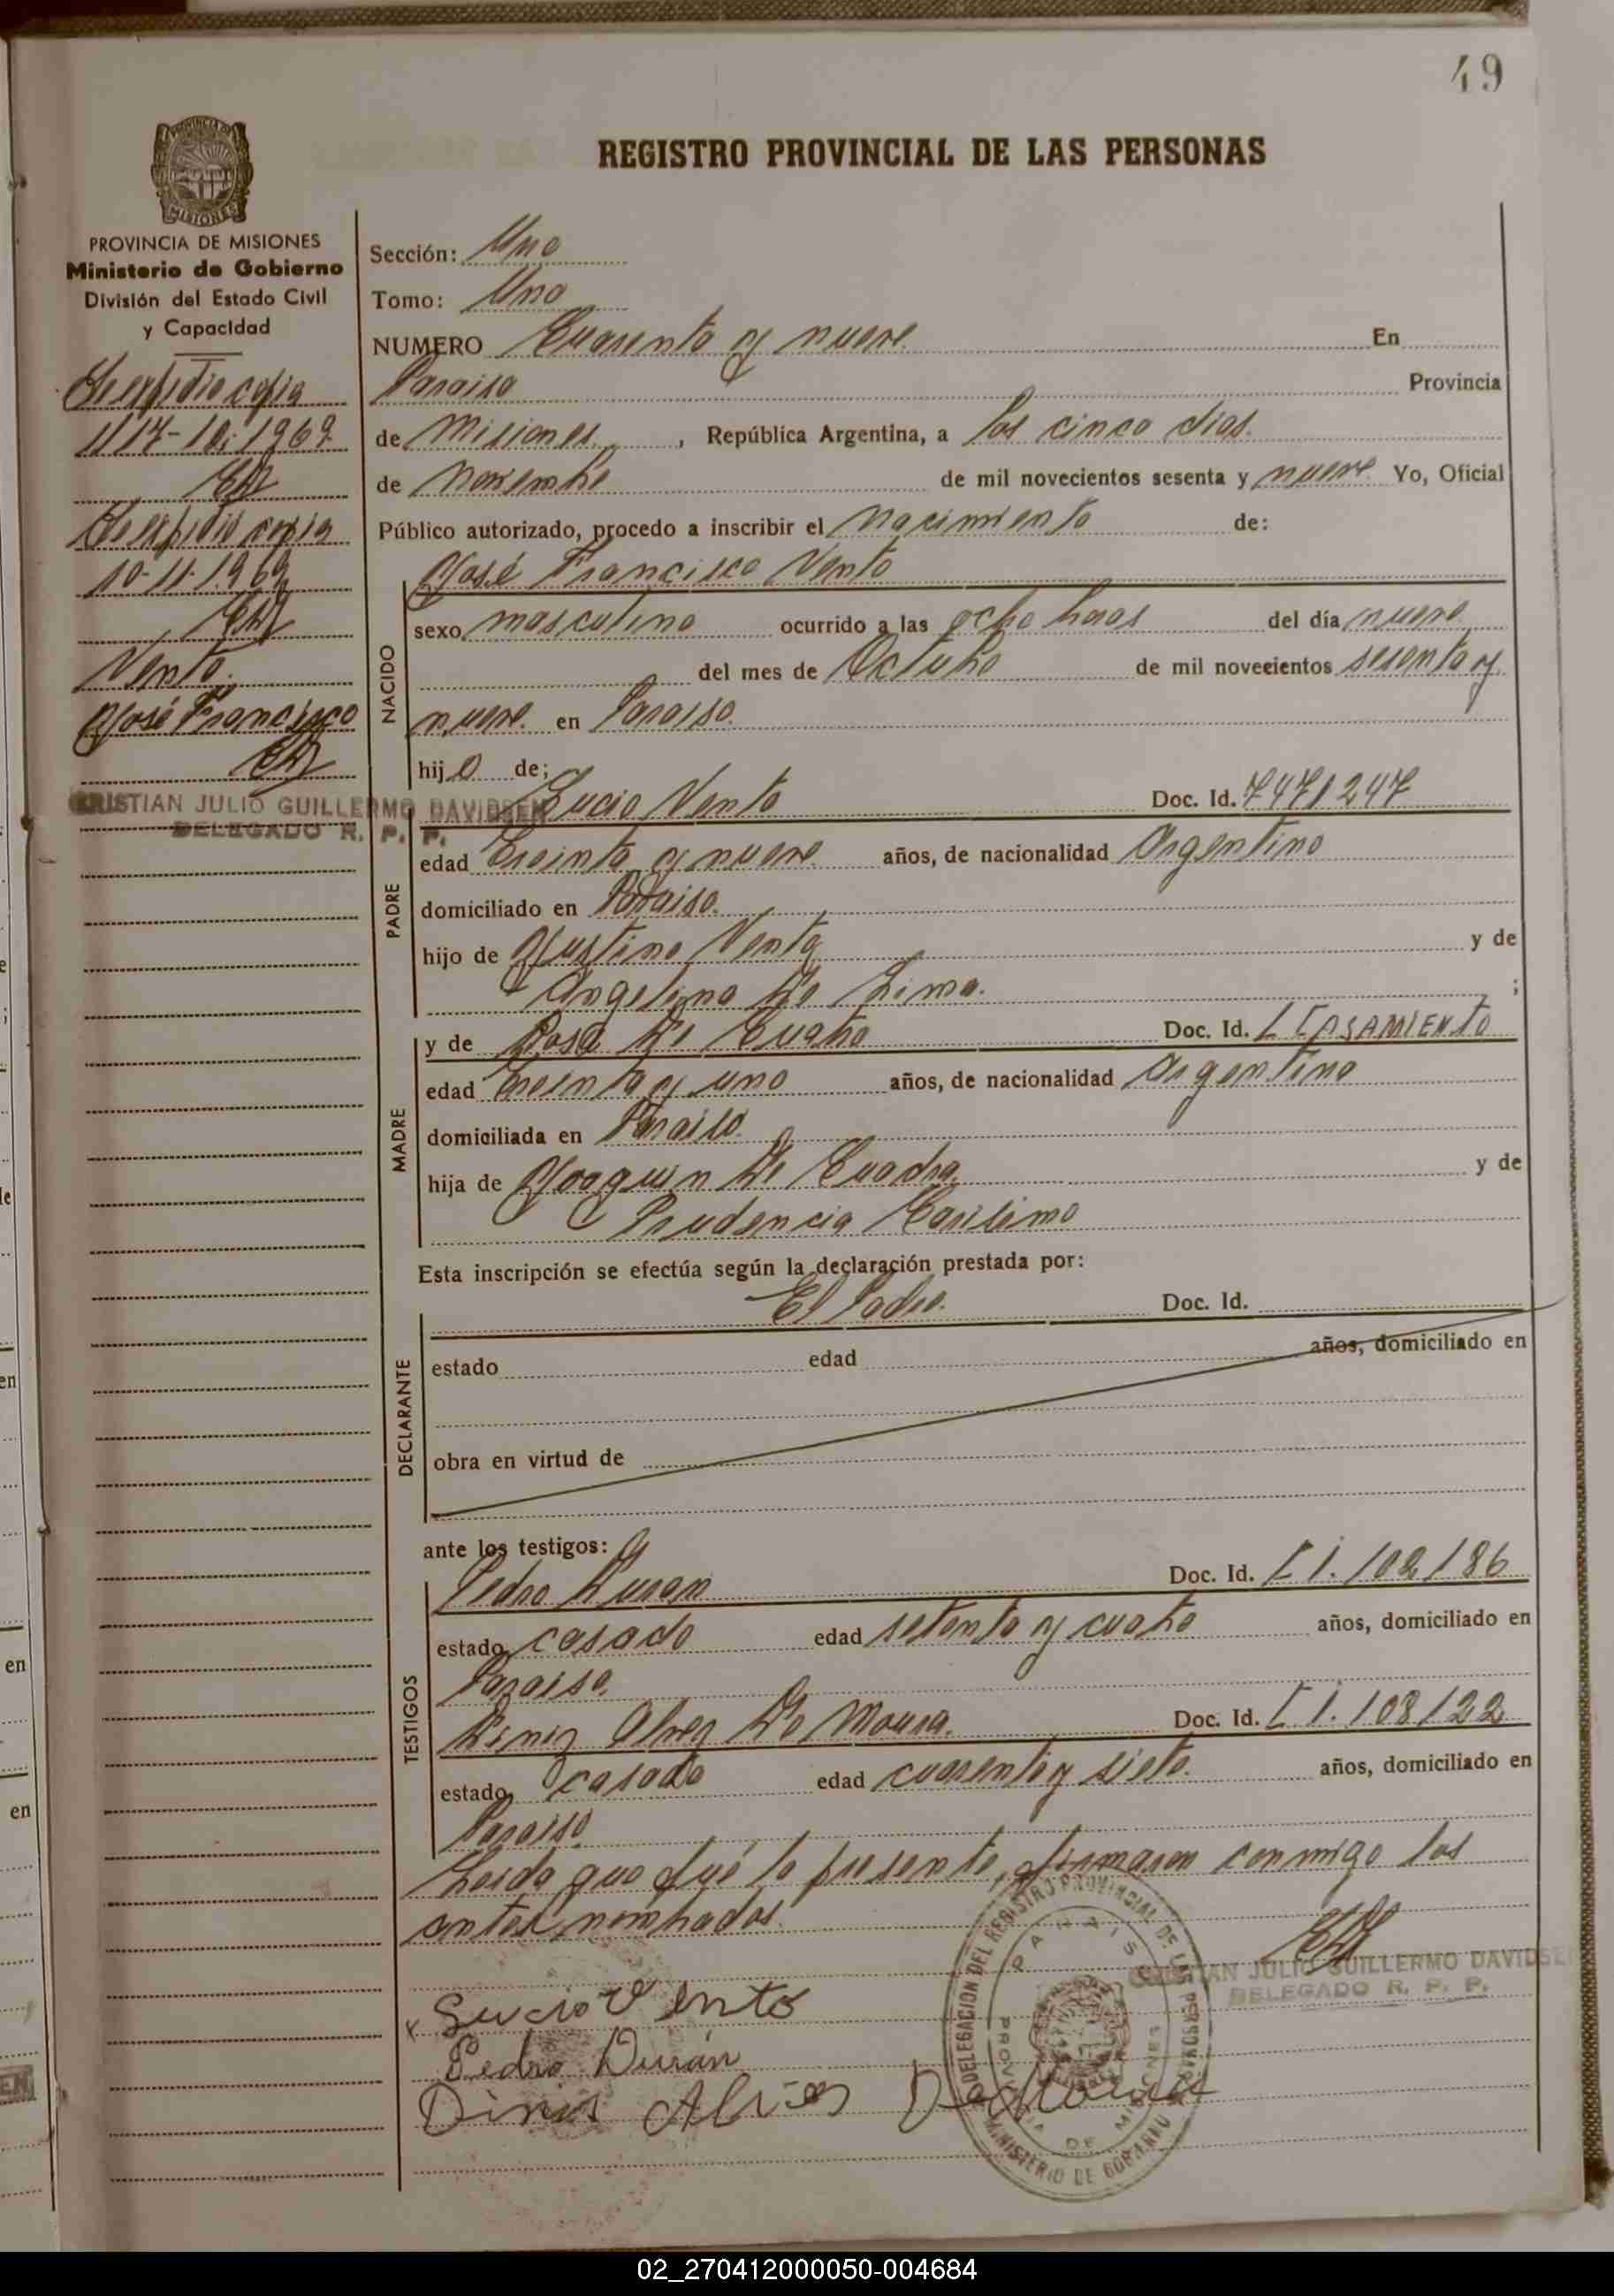 49
REGISTRO PROVINCIAL DE LAS PERSONAS
PROVINCIA DE MISIONES
MISIONES
PROVINCIA DE MISIONES
Ministerio de Gobierno
División del Estado Civil
y Capacidad
Se expidio copia
17-10-1969
Se expidio copia
10-11-1969
Vento.
José Francisco
CRISTIAN JULIO GUILLERMO DAVIDSEN
DELEGADO R. P. P.
Sección: Uno
Tomo: Uno
NUMERO Cuarenta y nueve En
Paraiso Provincia
de Misiones, República Argentina, a los cinco dias
de Noviembre de mil novecientos sesenta y nueve Yo, Oficial
Público autorizado, procedo a inscribir el Nacimiento de:
NACIDO
José Francisco Vento
sexo masculino ocurrido a las ocho horas del día nueve
del mes de Octubre de mil novecientos sesenta y
nueve en Paraiso.
hijo de;
PADRE
Lucio Vento Doc. Id. 7471247
edad treinta y nueve años, de nacionalidad Argentino
domiciliado en Paraiso.
hijo de Justino Vento y de
Angelina De Lima. ;
MADRE
y de Rosa De Cuadro Doc. Id. L CASAMIENTO
edad treinta y uno años, de nacionalidad Argentina
domiciliada en Paraiso
hija de Joaquin De Cuadra y de
Prudencia
Esta inscripción se efectúa según la declaración prestada por:
DECLARANTE
El Padre. Doc. Id.
estado edad años, domiciliado en
obra en virtud de
ante los testigos:
TESTIGOS
Pedro Duran Doc. Id. C I. 102186
estado casado edad setenta y cuatro años, domiciliado en
Paraiso.
Diniz Alves De Moura. Doc. Id. C I. 108122
estado casado edad cuarenta y siete. años, domiciliado en
Paraiso
Leida que fué la presente, firmaron conmigo los
antes nombrados.
CRISTIAN JULIO GUILLERMO DAVIDSEN
DELEGADO R. P. P.
DELEGACION DEL REGISTRO PROVINCIAL DE LAS PERSONAS
PARAISO
PROVINCIA DE MISIONES
MINISTERIO DE GOBIERNO
x Lucio Vento
Pedro Durán
Dinis Alves De Moura
02_270412000050-004684